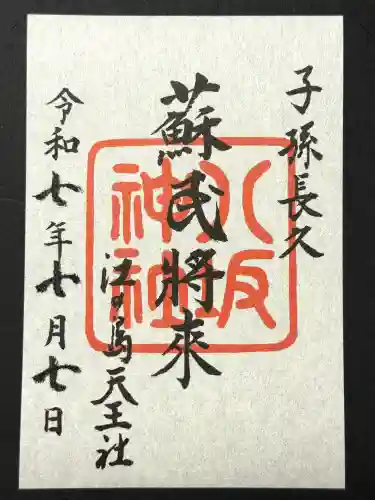 子孫長久
蘇民將來
江の島天王社
令和七年七月七日
八坂神社